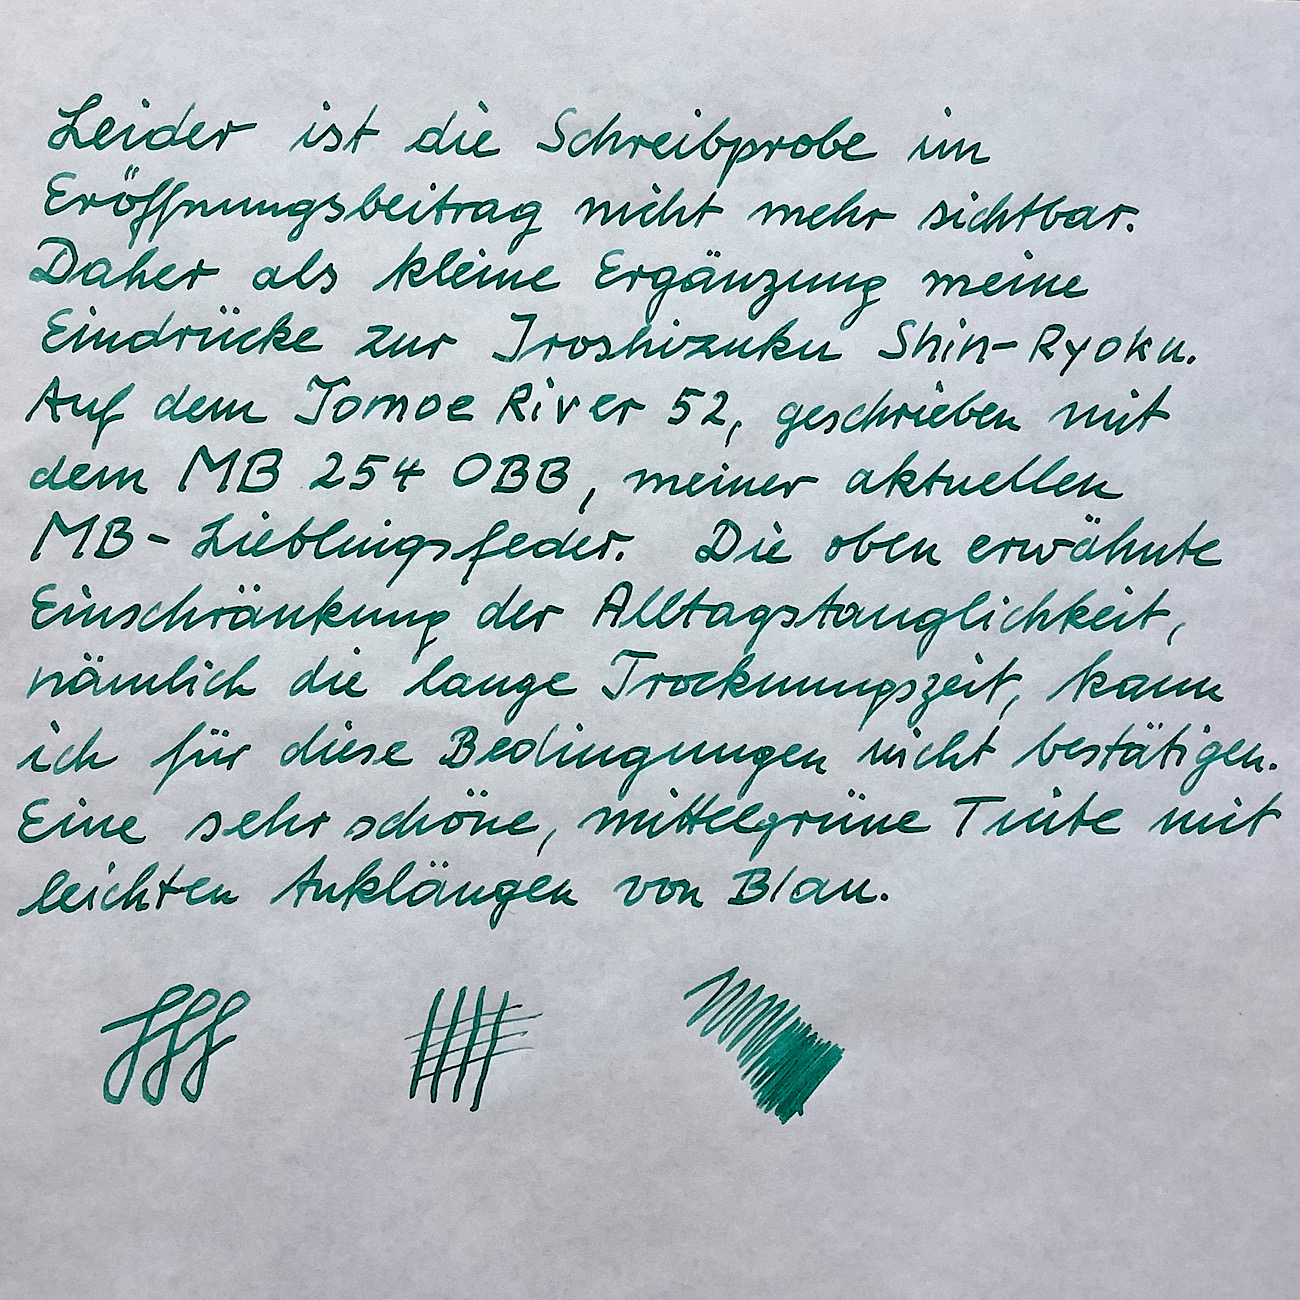 Leider ist die Schreibprobe im
Eröffnungsbeitrag nicht mehr sichtbar.
Daher als kleine Ergänzung meine
Eindrücke zur Iroshizuku Shin-Ryoku.
Auf dem Tomoe River 52, geschrieben mit
dem MB 254 OBB, meiner aktuellen
MB-Lieblingsfeder. Die oben erwähnte
Einschränkung der Alltagstauglichkeit,
nämlich die lange Trocknungszeit, kann
ich für diese Bedingungen nicht bestätigen.
Eine sehr schöne, mittelgrüne Tinte mit
leichten Anklängen von Blau.